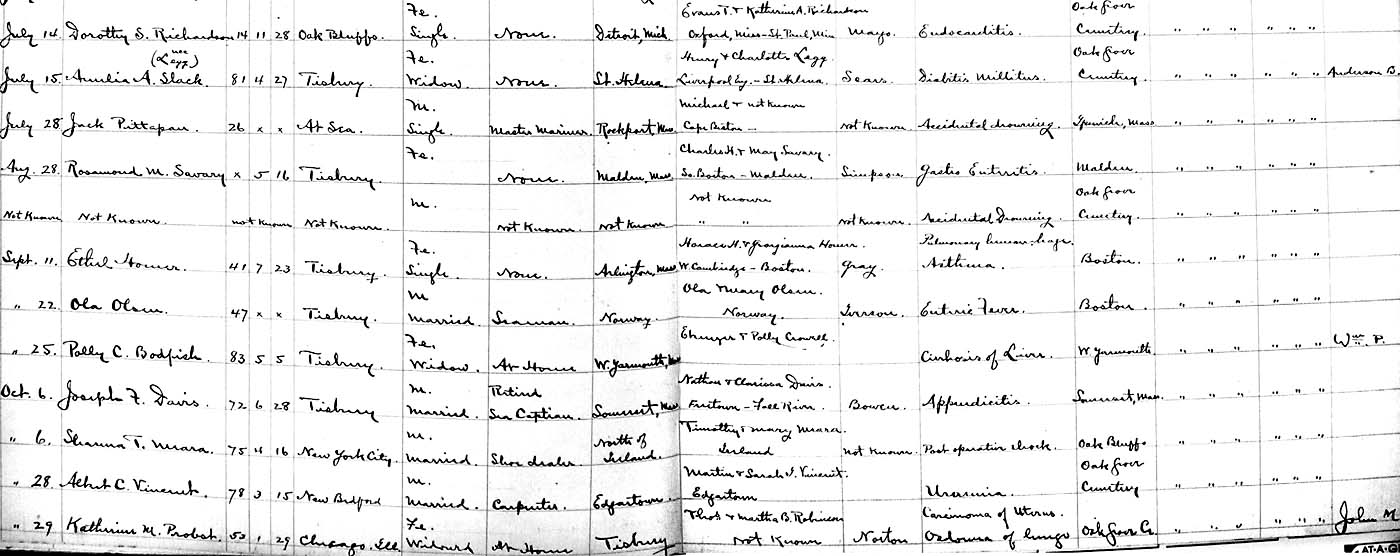 Fe. Evans T. & Katherine A. Richardson Oak Grove
July 14. Dorothy S. Richardson 14 11 28 Oak Bluffs Single. None. Detroit, Mich. Oxford, Miss - St. Paul, Min Mayo. Endocarditis. Cemetery. " " " " " "
(nee Legg) Fe. Henry & Charlotte Legg Oak Grove
July 15. Amelia A. Slack. 81 4 27 Tisbury. Widow. None. St. Helena. Liverpool Eng. - St. Helena. Sears. Diabitis Millitus. Cemetery. " " " " " " Anderson B.
M. Michael & not known
July 28 Jack Pittapau. 26 x x At Sea. Single. Master Mariner. Rockport, Mass. Cape Breton - Not Known. Accidental drowning. Ipswich, Mass " " " " " "
Fe. Charles H. & May Savary.
Aug. 28. Rosamond M. Savary x 5 16 Tisbury. None. Malden, Mass So. Boston - Malden. Simpson. Gastro Enteritis. Malden. " " " " " "
M. Not Known Oak Grove
Not Known Not Known. not Known Not Known. not Known. not Known " " Not Known. Accidental Drowning. Cemetery. " " " " " "
Fe. Horace H. & Georgianna Homer. Pulmonary hemorrhage.
Sept. 11. Ethel Homer. 41 7 23 Tisbury. Single. None. Arlington, Mass W. Cambridge - Boston. Gray. Asthma. Boston. " " " " " "
M Ola & Mary Olsen.
" 22. Ola Olsen. 47 x x Tisbury. Married. Seaman. Norway. Norway. Iverson. Enteric Fever. Boston. " " " " " "
Fe. Ebenezer & Polly Crowell.
" 25. Polly C. Bodfish. 83 5 5 Tisbury. Widow. At Home W. Yarmouth, Mass Cirrhosis of Liver. W. Yarmouth. " " " " " " Wm. P.
M. Retired Nathan & Clarissa Davis.
Oct. 6. Joseph F. Davis. 72 6 28 Tisbury Married. Sea Captian. Somerset, Mass Freetown - Fall River. Bowen. Appendicitis. Somerset, Mass. " " " " " "
M. North of Timothy & Mary Meara.
" 6. T. Meara. 75 4 16 New York City. Married. Shoe dealer. Ireland. Ireland not Known. Post operative shock. Oak Bluffs " " " " " "
M. Martin & Sarah J. Vincent. Oak Grove
" 28. Albert C. Vincent. 78 3 15 New Bedford Married. Carpenter. Edgartown. Edgartown Uraemia. Cemetery " " " " " "
Fe. Thos & Martha B. Robinson Carcinoma of Uterus.
" 29 Katherine M. Probst. 50 1 29 Chicago, Ill Widowed At Home Tisbury Not Known Norton Oedema of lungs Oak Grove Ce " " " " " " John M